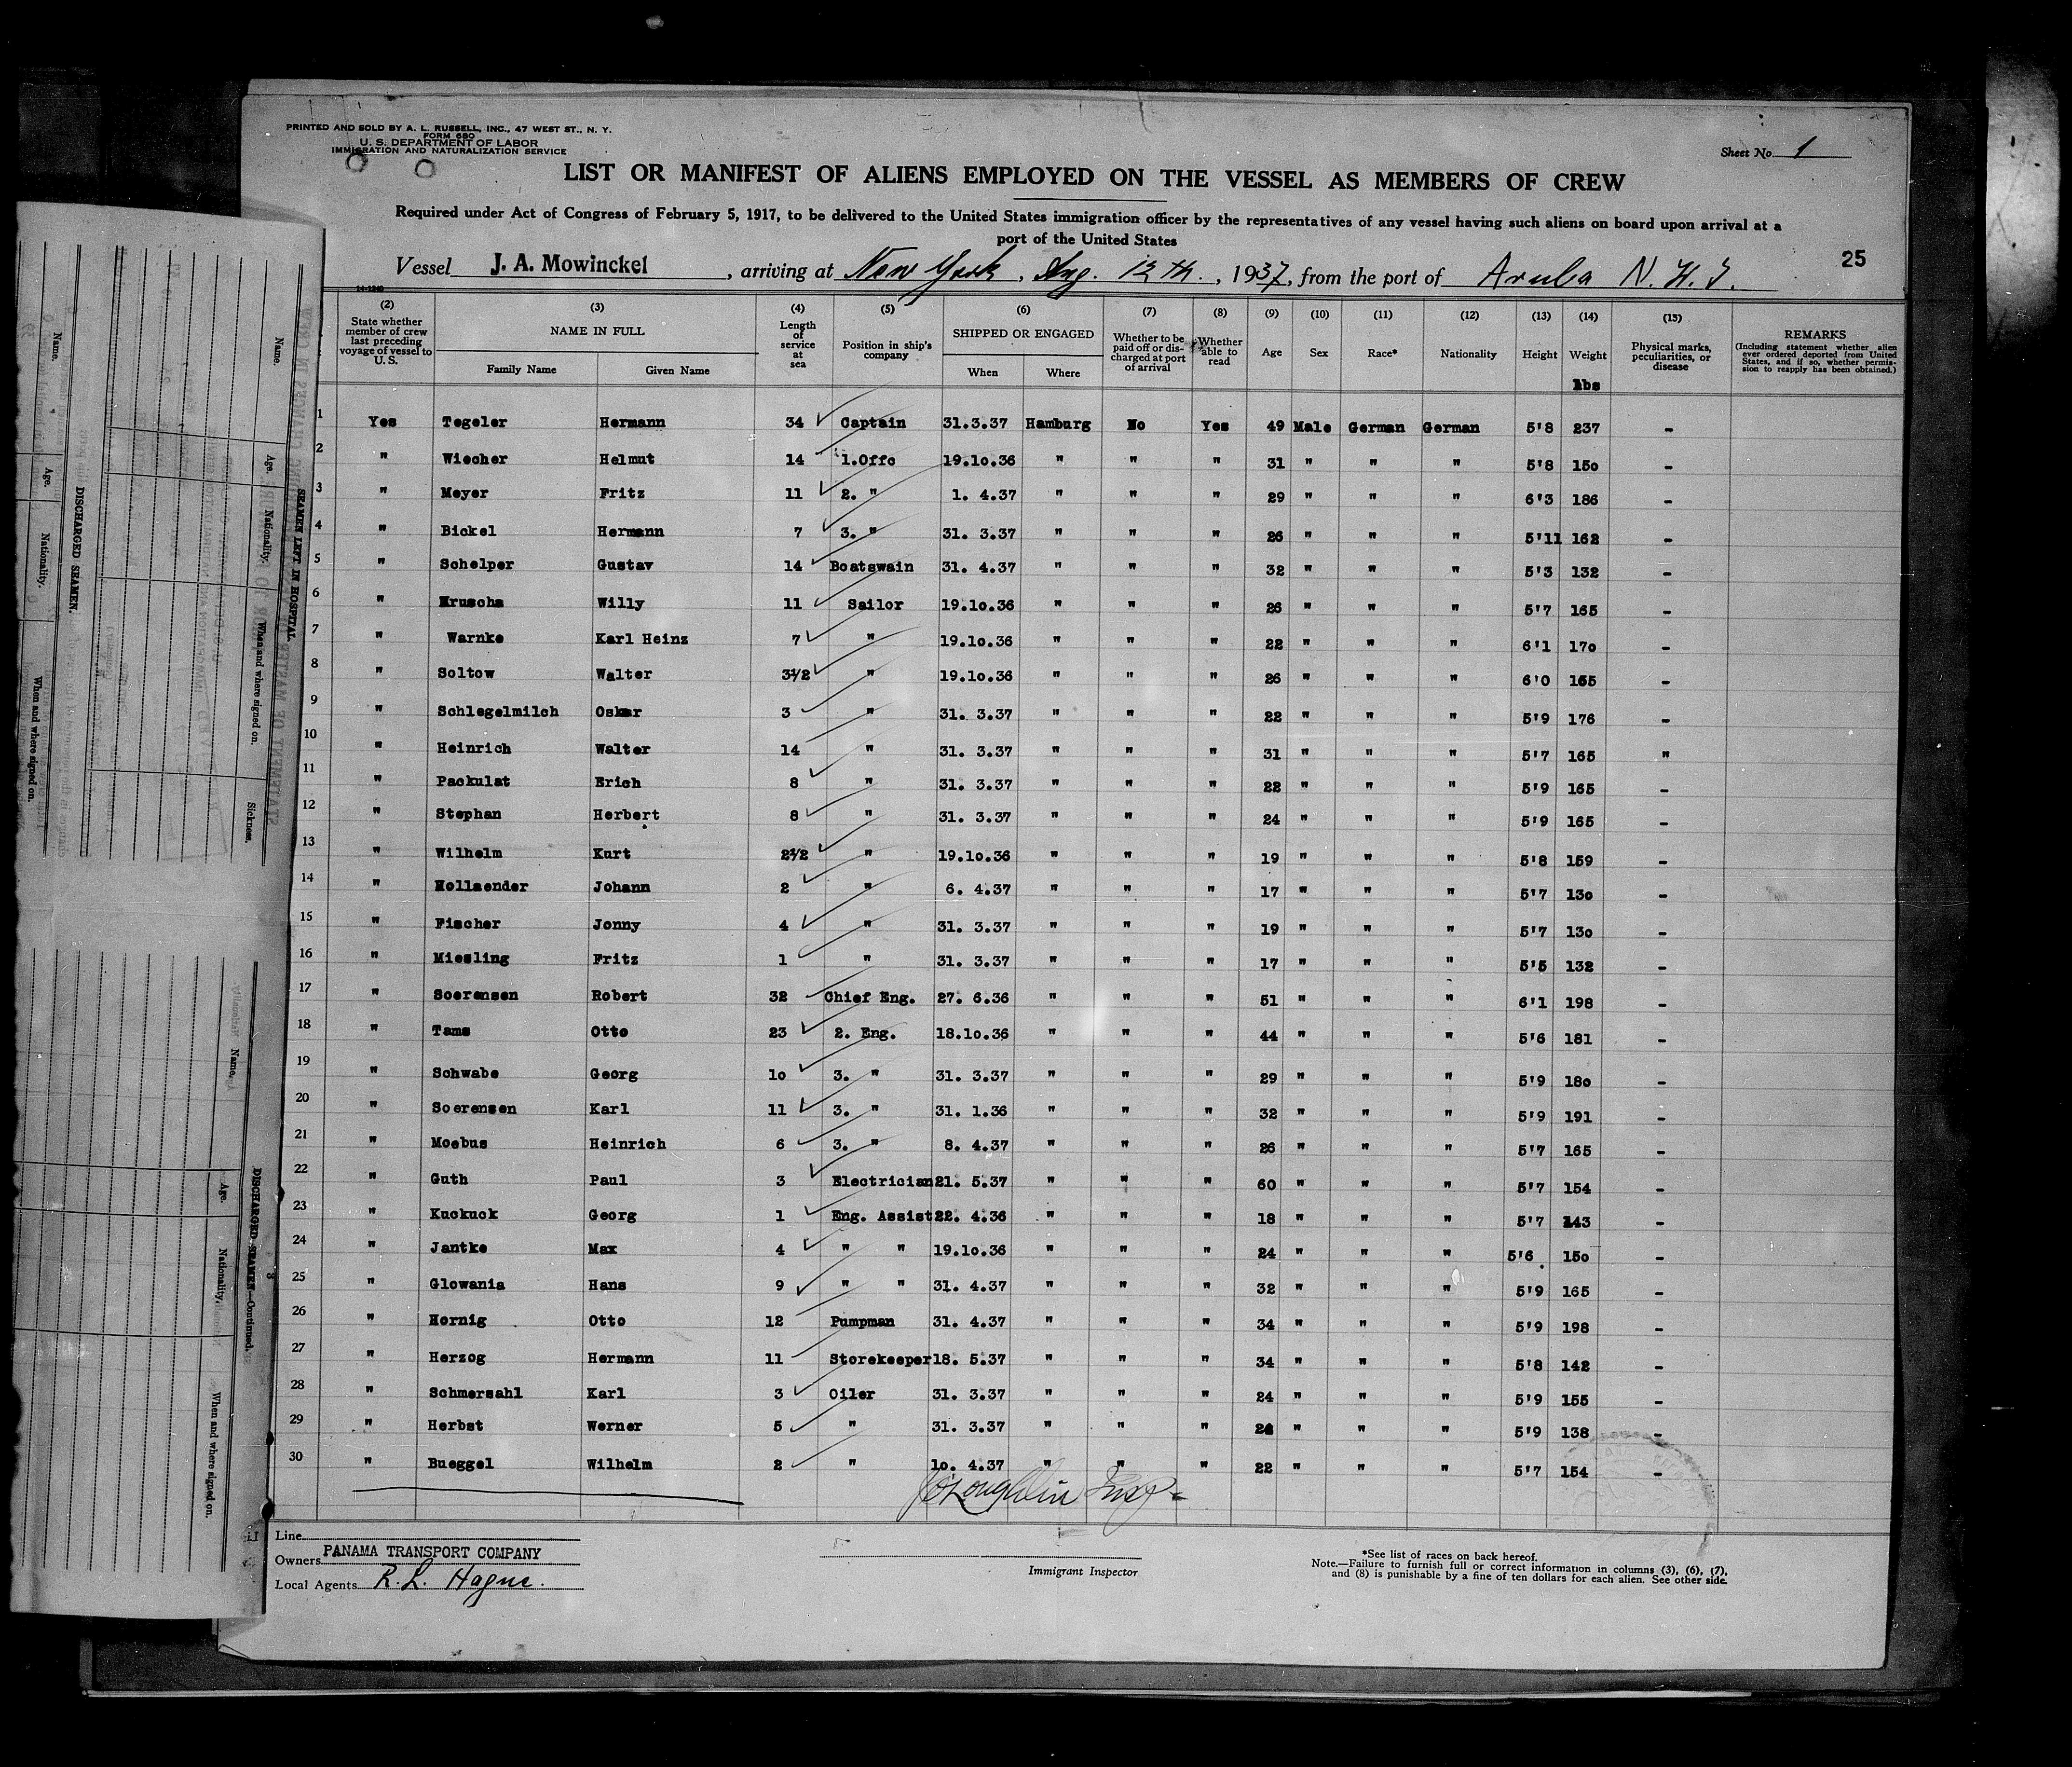 PRINTED AND SOLD BY A. L. RUSSELL, INC., 47 WEST ST., N. Y.
FORM 680
U. S. DEPARTMENT OF LABOR
IMMIGRATION AND NATURALIZATION SERVICE
Sheet No. 1
LIST OR MANIFEST OF ALIENS EMPLOYED ON THE VESSEL AS MEMBERS OF CREW
Required under Act of Congress of February 5, 1917, to be delivered to the United States immigration officer by the representatives of any vessel having such aliens on board upon arrival at a
port of the United States
25
Vessel J. A. Mowinckel, arriving at New York, Aug. 12 th., 1937, from the port of Aruba N. W. I.
14-1240
(2) (3) (4) (5) (6) (7) (8) (9) (10) (11) (12) (13) (14) (15)
State whether member of crew last preceding voyage of vessel to U. S. NAME IN FULL Family Name Given Name Length of service at sea Position in ship's company SHIPPED OR ENGAGED When Where Whether to be paid off or discharged at port of arrival Whether able to read Age Sex Race* Nationality Height Weight lbs Physical marks, peculiarities, or disease REMARKS (Including statement whether alien ever ordered deported from United States, and if so, whether permission to reapply has been obtained.)
1 Yes Tegeler Hermann 34 Captain 31.3.37 Hamburg No Yes 49 Male German German 5'8 237 -
2 " Wiecher Helmut 14 1.Offc 19.10.36 " " " 31 " " " 5'8 150 -
3 " Meyer Fritz 11 2. " 1. 4.37 " " " 29 " " " 6'3 186 -
4 " Bickel Hermann 7 3. " 31. 3.37 " " " 26 " " " 5'11 162 -
5 " Schelper Gustav 14 Boatswain 31. 4.37 " " " 32 " " " 5'3 132 -
6 " Hruscha Willy 11 Sailor 19.10.36 " " " 26 " " " 5'7 165 -
7 " Warnke Karl Heinz 7 " 19.10.36 " " " 22 " " " 6'1 170 -
8 " Soltow Walter 3½ " 19.10.36 " " " 26 " " " 6'0 165 -
9 " Schlegelmilch Oskar 3 " 31. 3.37 " " " 22 " " " 5'9 176 -
10 " Heinrich Walter 14 " 31. 3.37 " " " 31 " " " 5'7 165 "
11 " Packulat Erich 8 " 31. 3.37 " " " 22 " " " 5'9 165 -
12 " Stephan Herbert 8 " 31. 3.37 " " " 24 " " " 5'9 165 -
13 " Wilhelm Kurt 2½ " 19.10.36 " " " 19 " " " 5'8 159 -
14 " Hollaender Johann 2 " 6. 4.37 " " " 17 " " " 5'7 130 -
15 " Fischer Jonny 4 " 31. 3.37 " " " 19 " " " 5'7 130 -
16 " Miesling Fritz 1 " 31. 3.37 " " " 17 " " " 5'5 132 -
17 " Soerensen Robert 32 Chief Eng. 27. 6.36 " " " 51 " " " 6'1 198 -
18 " Tams Otto 23 2. Eng. 18.10.36 " " " 44 " " " 5'6 181 -
19 " Schwabe Georg 10 3. " 31. 3.37 " " " 29 " " " 5'9 180 -
20 " Soerensen Karl 11 3. " 31. 1.36 " " " 32 " " " 5'9 191 -
21 " Moebus Heinrich 6 3. " 8. 4.37 " " " 26 " " " 5'7 165 -
22 " Guth Paul 3 Electrician 21. 5.37 " " " 60 " " " 5'7 154 -
23 " Kuckuck Georg 1 Eng. Assist 22. 4.36 " " " 18 " " " 5'7 143 -
24 " Jantke Max 4 " " 19.10.36 " " " 24 " " " 5'6 150 -
25 " Glowania Hans 9 " " 31. 4.37 " " " 32 " " " 5'9 165 -
26 " Hornig Otto 12 Pumpman 31. 4.37 " " " 34 " " " 5'9 198 -
27 " Herzog Hermann 11 Storekeeper 18. 5.37 " " " 34 " " " 5'8 142 -
28 " Schmersahl Karl 3 Oiler 31. 3.37 " " " 24 " " " 5'9 155 -
29 " Herbst Werner 5 " 31. 3.37 " " " " " " 5'9 138 -
30 " Bueggel Wilhelm 2 " 10. 4.37 " " " 22 " " " 5'7 154 -
J O'Loughlin Insp
Line
Owners PANAMA TRANSPORT COMPANY
Local Agents R. L. Hague.
Immigrant Inspector
*See list of races on back hereof.
Note.—Failure to furnish full or correct information in columns (3), (6), (7),
and (8) is punishable by a fine of ten dollars for each alien. See other side.
SEAMEN LEFT IN HOSPITAL.
Name. Age. Nationality. When and where signed on. Sickness.
DISCHARGED SEAMEN.
Name. Age. Nationality. When and where signed on.
DISCHARGED SEAMEN—Continued.
Name. Age. Nationality. When and where signed on.